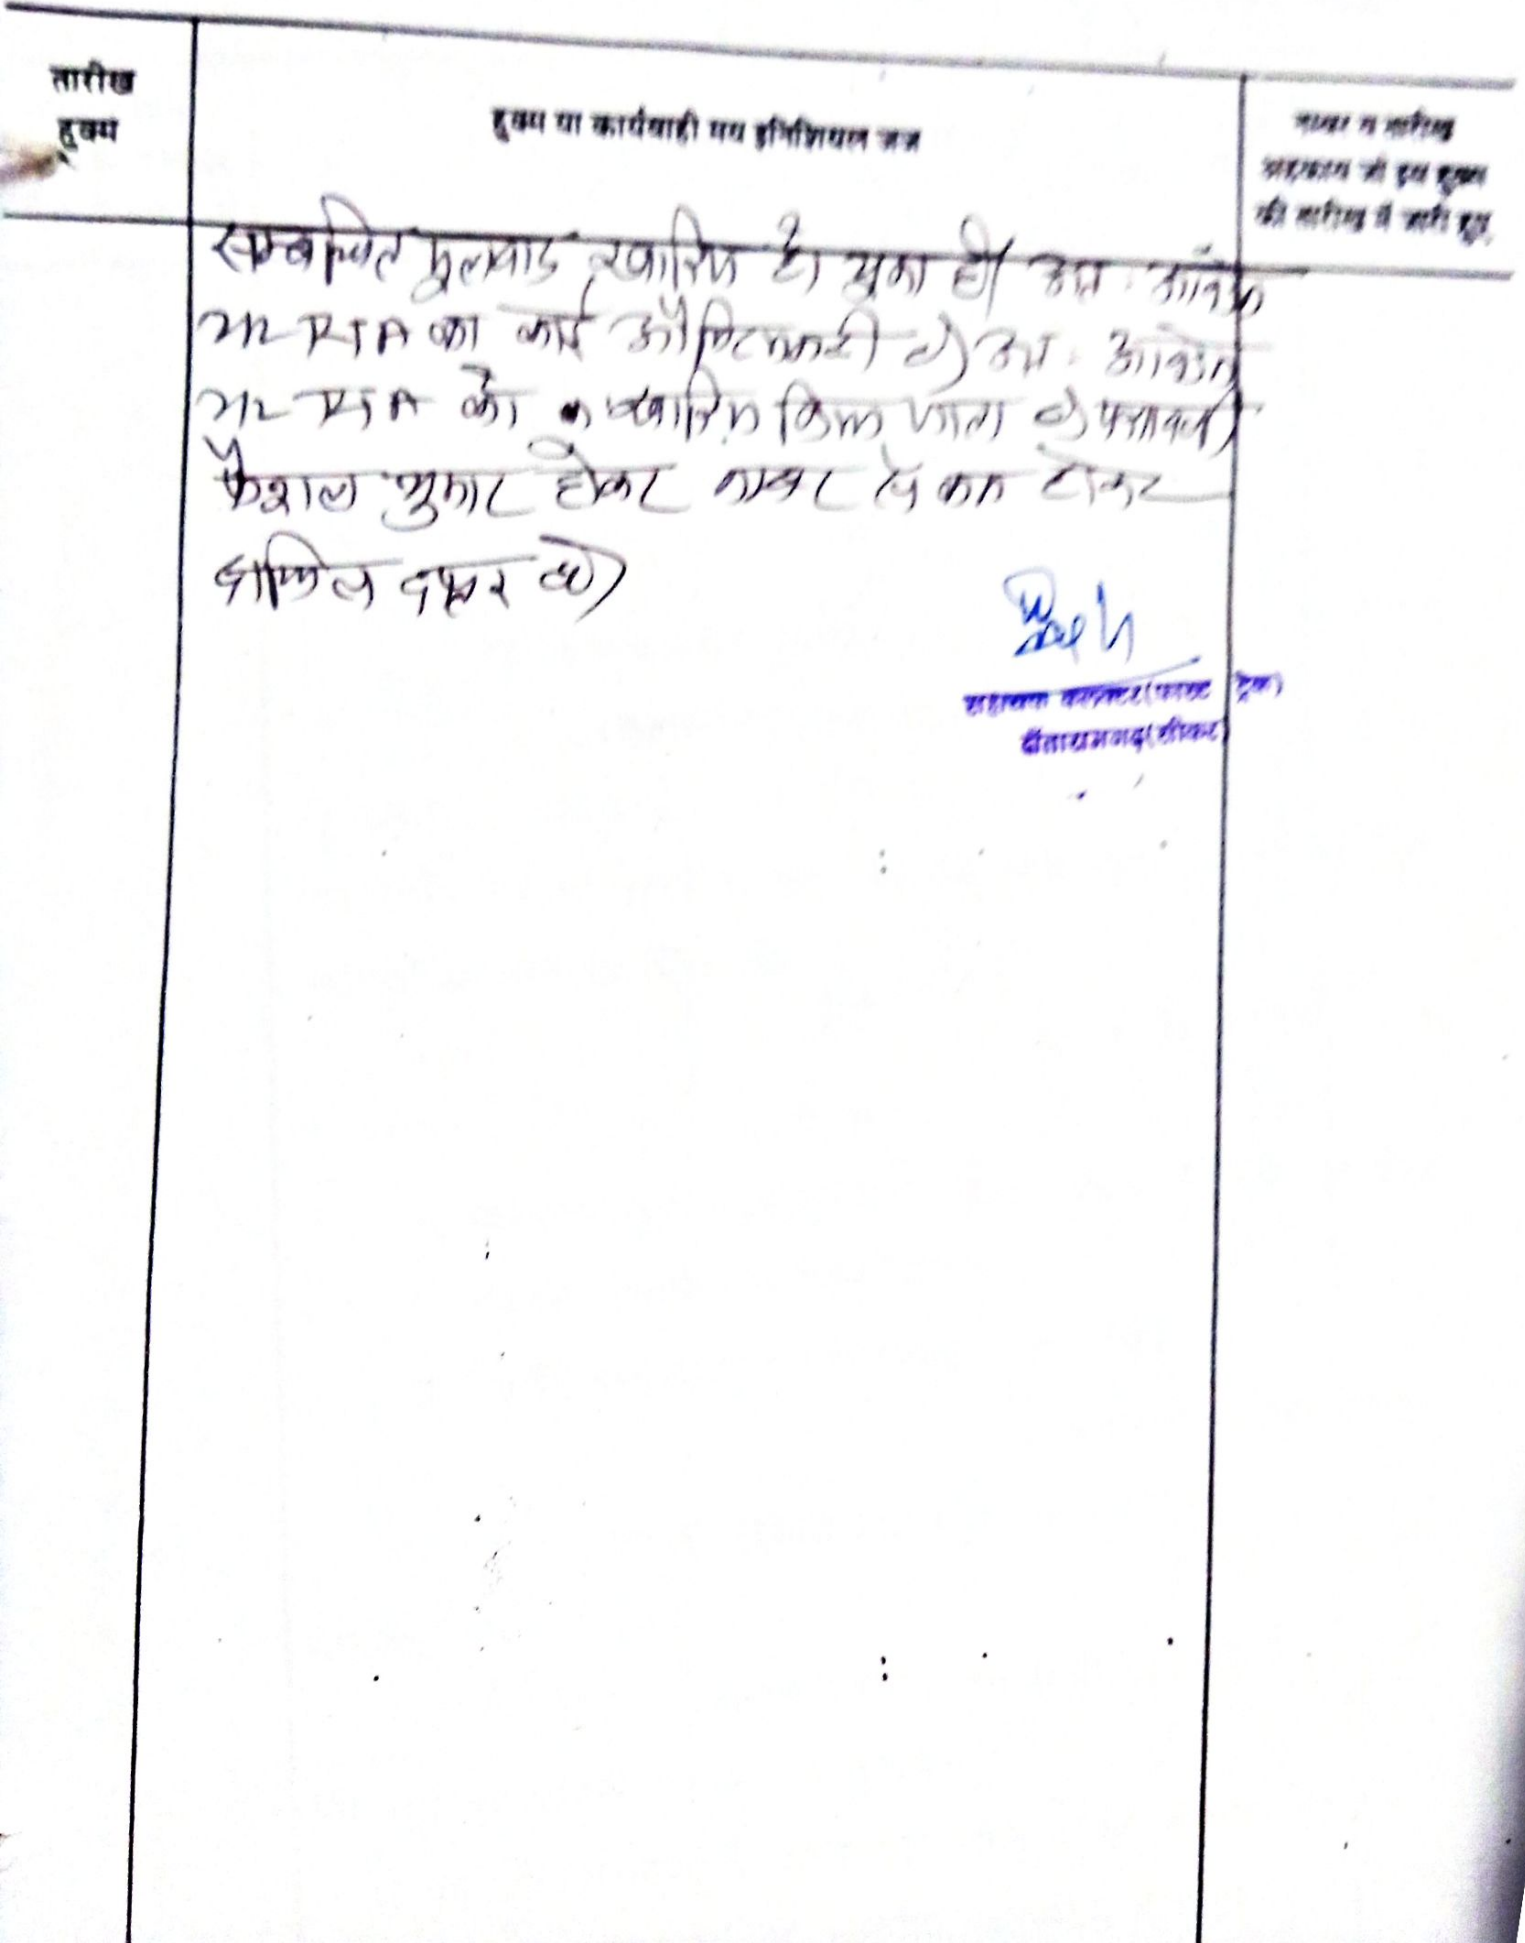 तारीख
हुक्म
हुक्म या कार्यवाही मय इनिशियल जज
नम्बर व तारीख
अहकाम जो इस हुक्म
की तारीख में जारी हुए
सम्बन्धित मूलवाद खारिज हो चुका है। अतः
RTA का कोई औचित्य नही है। अतः
RTA को खारिज किया जाता है। पत्रावली
फैशल शुमार होकर नम्बर से कम होकर
दाखिल दफ्तर हो।
सहायक कलक्टर(फास्ट ट्रेक)
दाँतारामगढ़(सीकर)